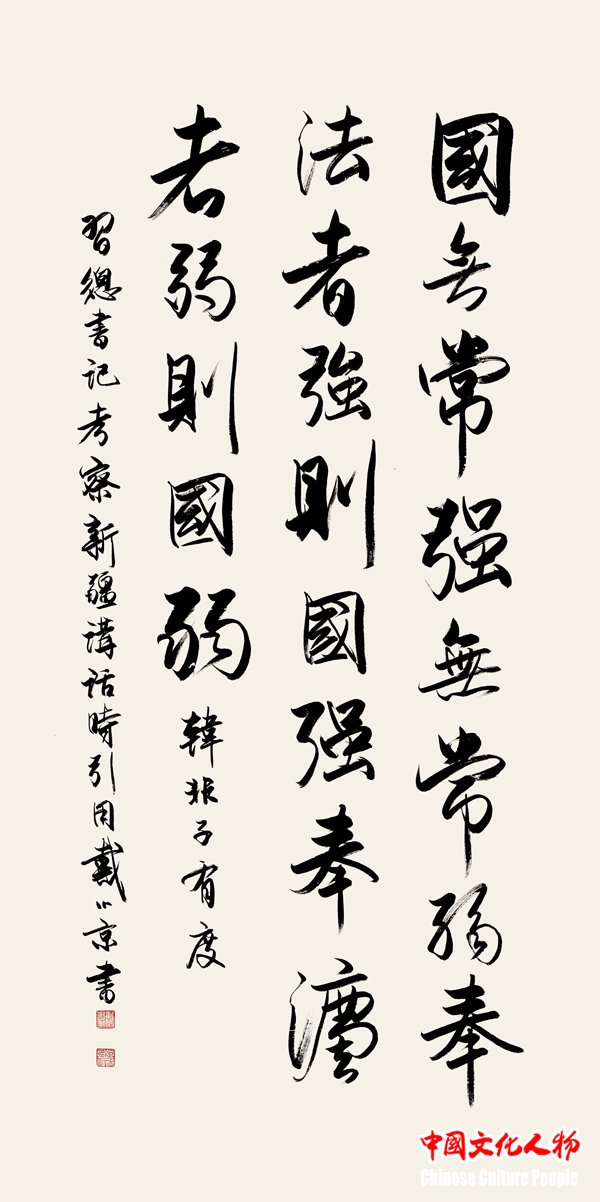 國無常强無常弱奉
法者強則國强奉灋
者弱則國弱
韓非子有度
習總書記考察新疆講話時引用戴小京書
中國文化人物
Chinese Culture People